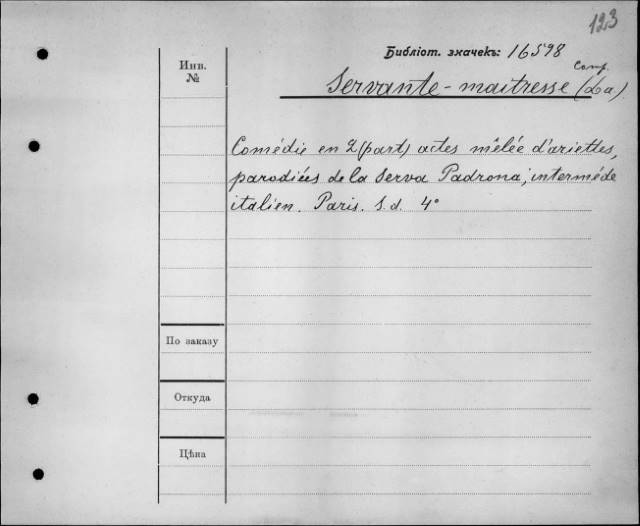 123
Библіот. значекъ: 16598
Comp.
Servante-maitresse (La).
Инв.
№
Comédie en 2 (part) actes mêlée d'ariettes,
parodiées de la Serva Padrona; interméde
italien. Paris. S.d. 4°
По заказу
Откуда
Цѣна